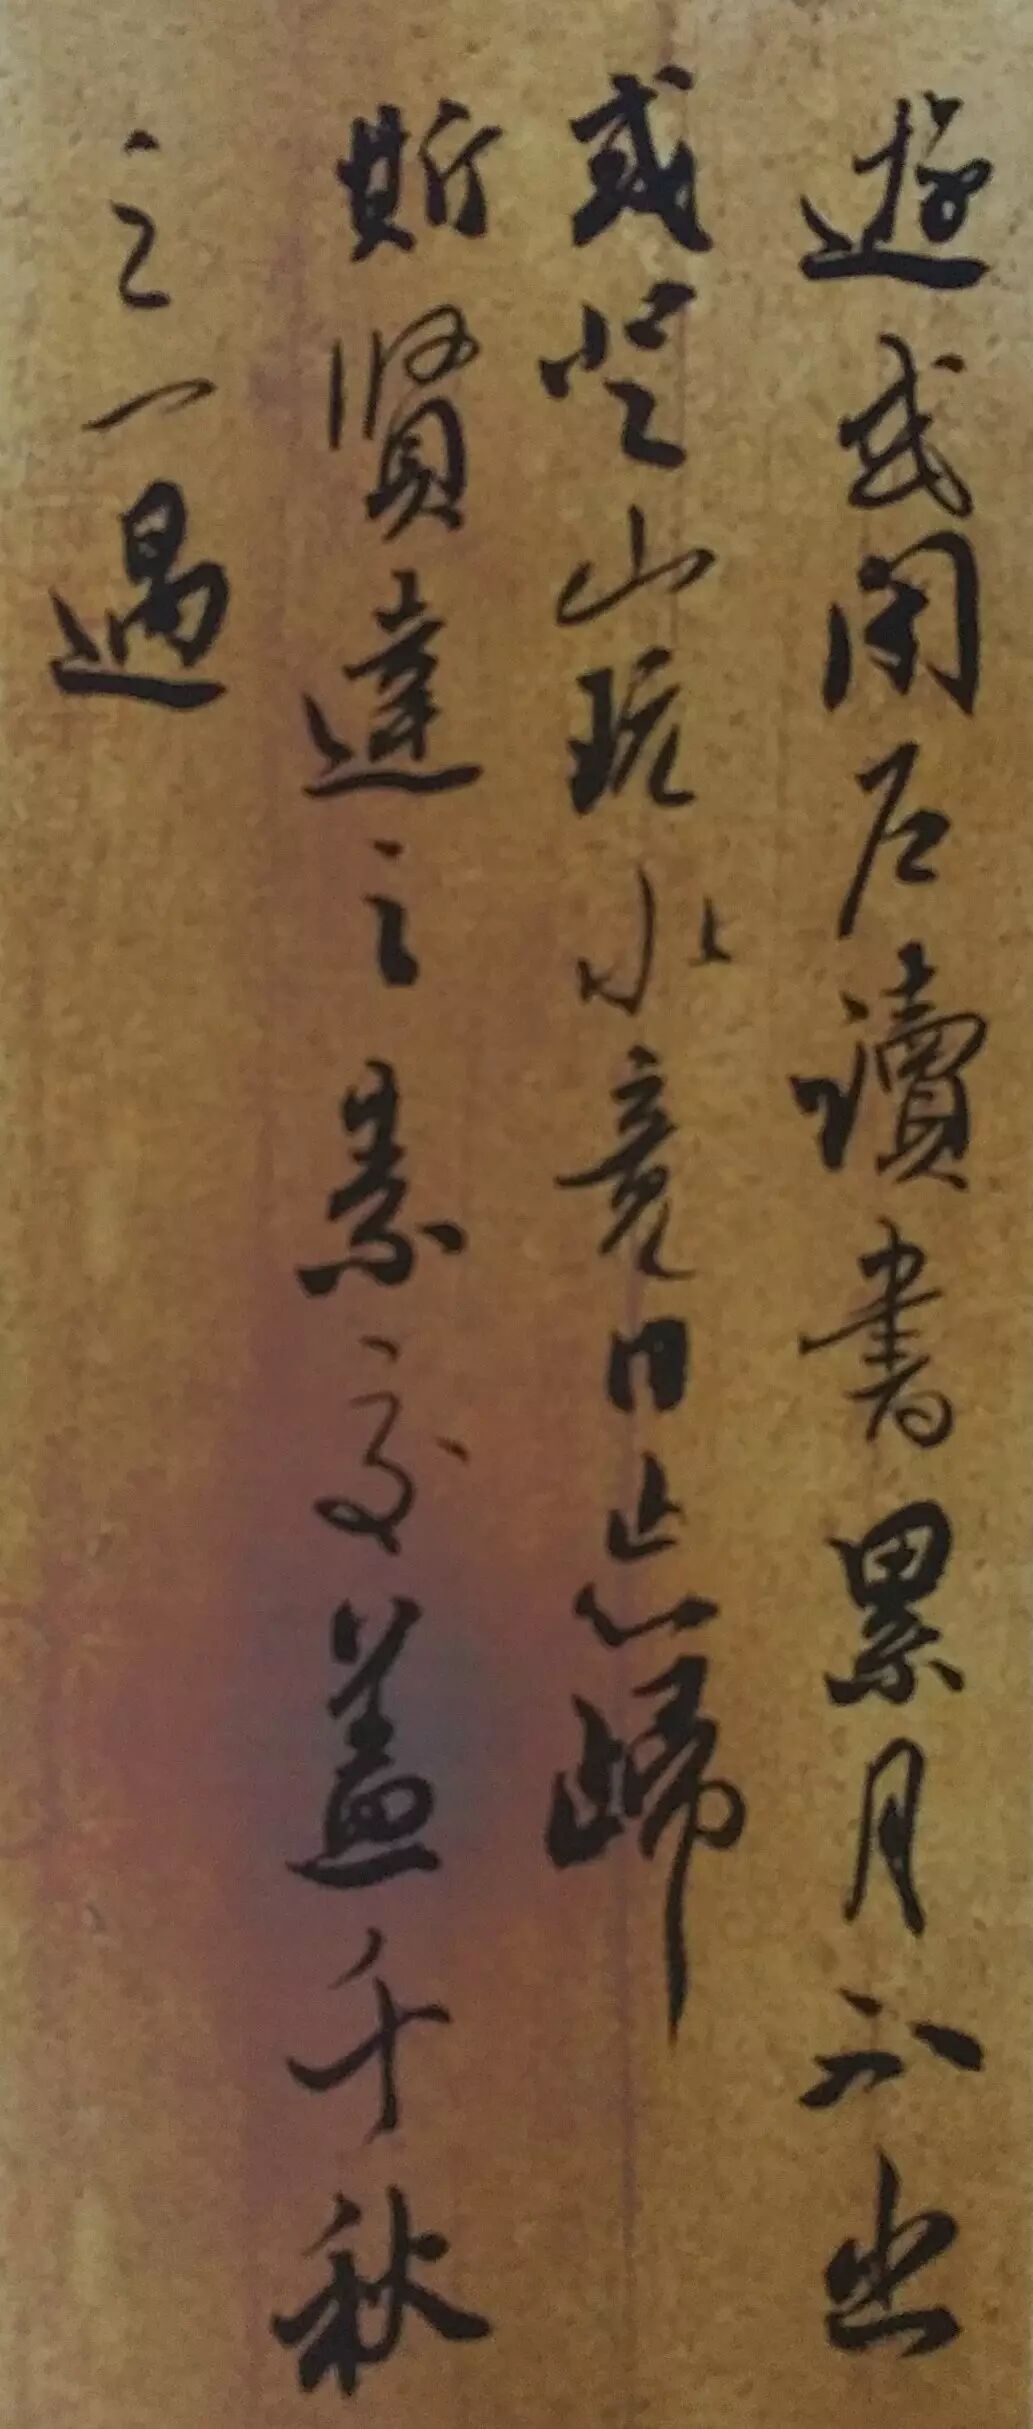 遊或閉户讀書累月不出
或登山玩水竟日忘歸
斯賢達之素交蓋千秋
之一遇